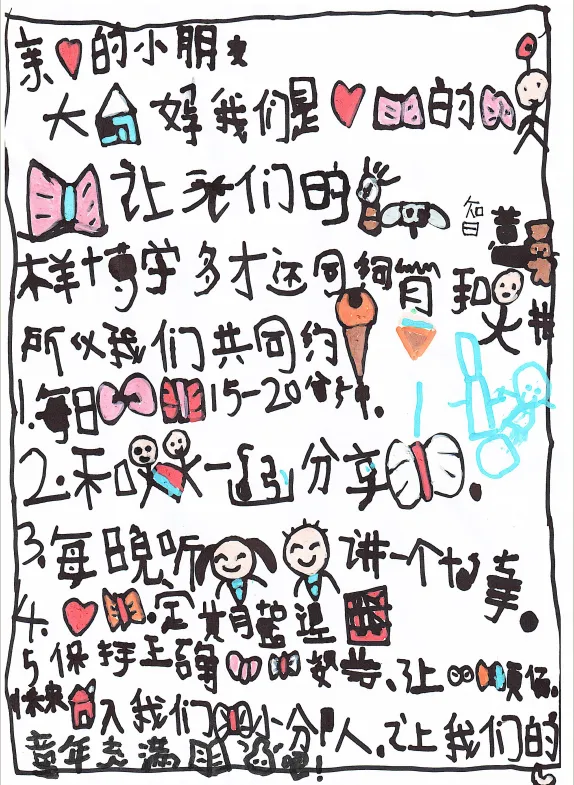 亲的小朋友
大好我们是的
让我们的
智慧
样博学多才还同
和
所以我们共同约
1.每日15-20分钟.
2.和一起分享.
3.每晚听讲一个故事.
4.定期整理
5保持正确姿势、让
快来入我们小分队人.让我们的
童年充满吧!